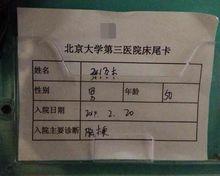 北京大学第三医院床尾卡
姓名
性别 男 年龄 50
入院日期 2019. 2. 20
入院主要诊断 脑梗